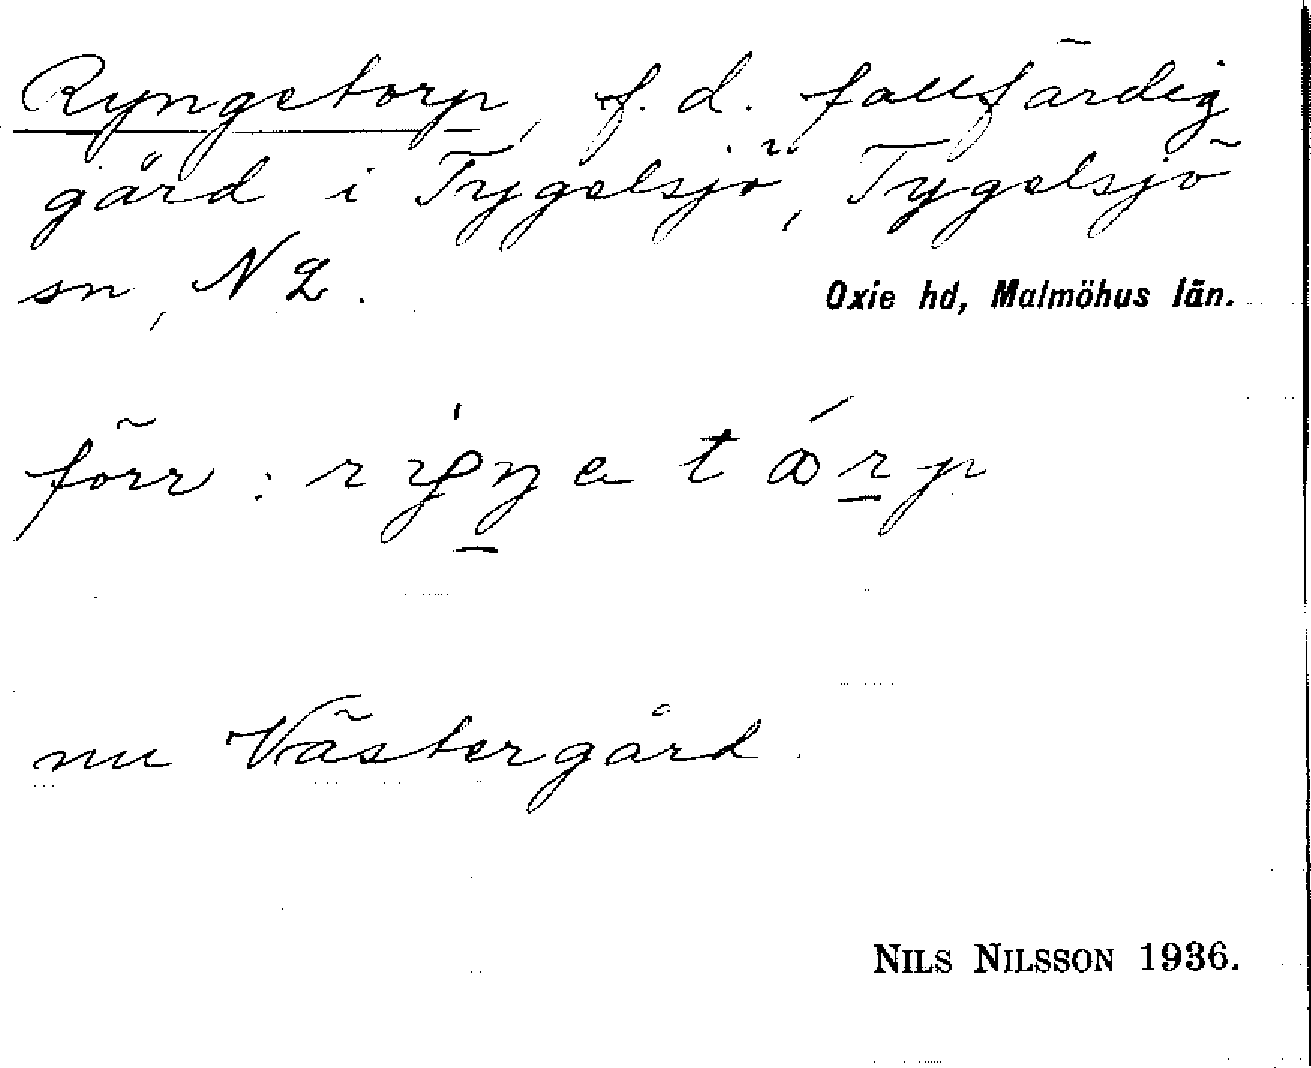 Ryngetorp, f. d. fallfärdig
gård i Tygelsjö, Tygelsjö
sn, N 2.
Oxie hd, Malmöhus län.
förr:
nu Västergård.
NILS NILSSON 1936.